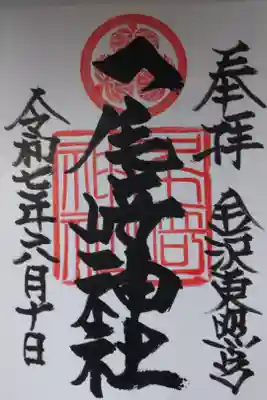 奉拝
金沢東照宮
尾崎神社
令和七年六月十日